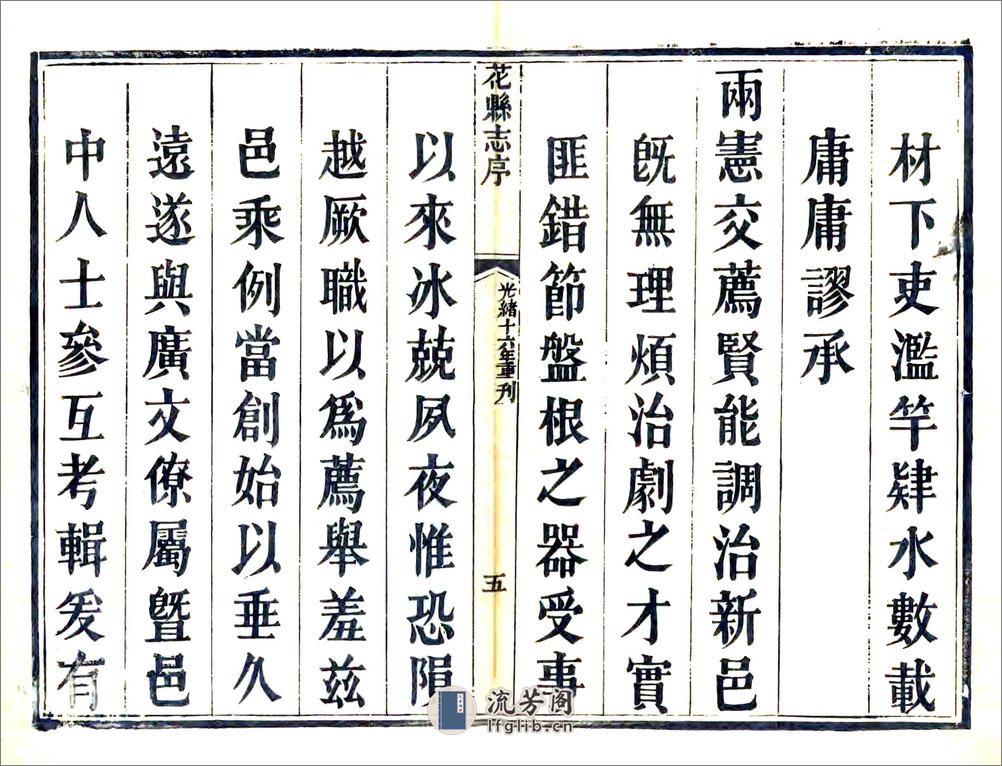 材下吏濫竽肄水數載
庸庸謬承
兩憲交薦賢能調治新邑
旣無理煩治劇之才實
匪錯節盤根之器受事
花縣志序
光緒十六年重刋
五
以來冰兢夙夜惟恐隕
越厥職以爲薦舉羞兹
邑乘例當創始以垂久
遠遂與廣文僚屬曁邑
中人士參互考輯爰有
流芳阁
lfglib.cn